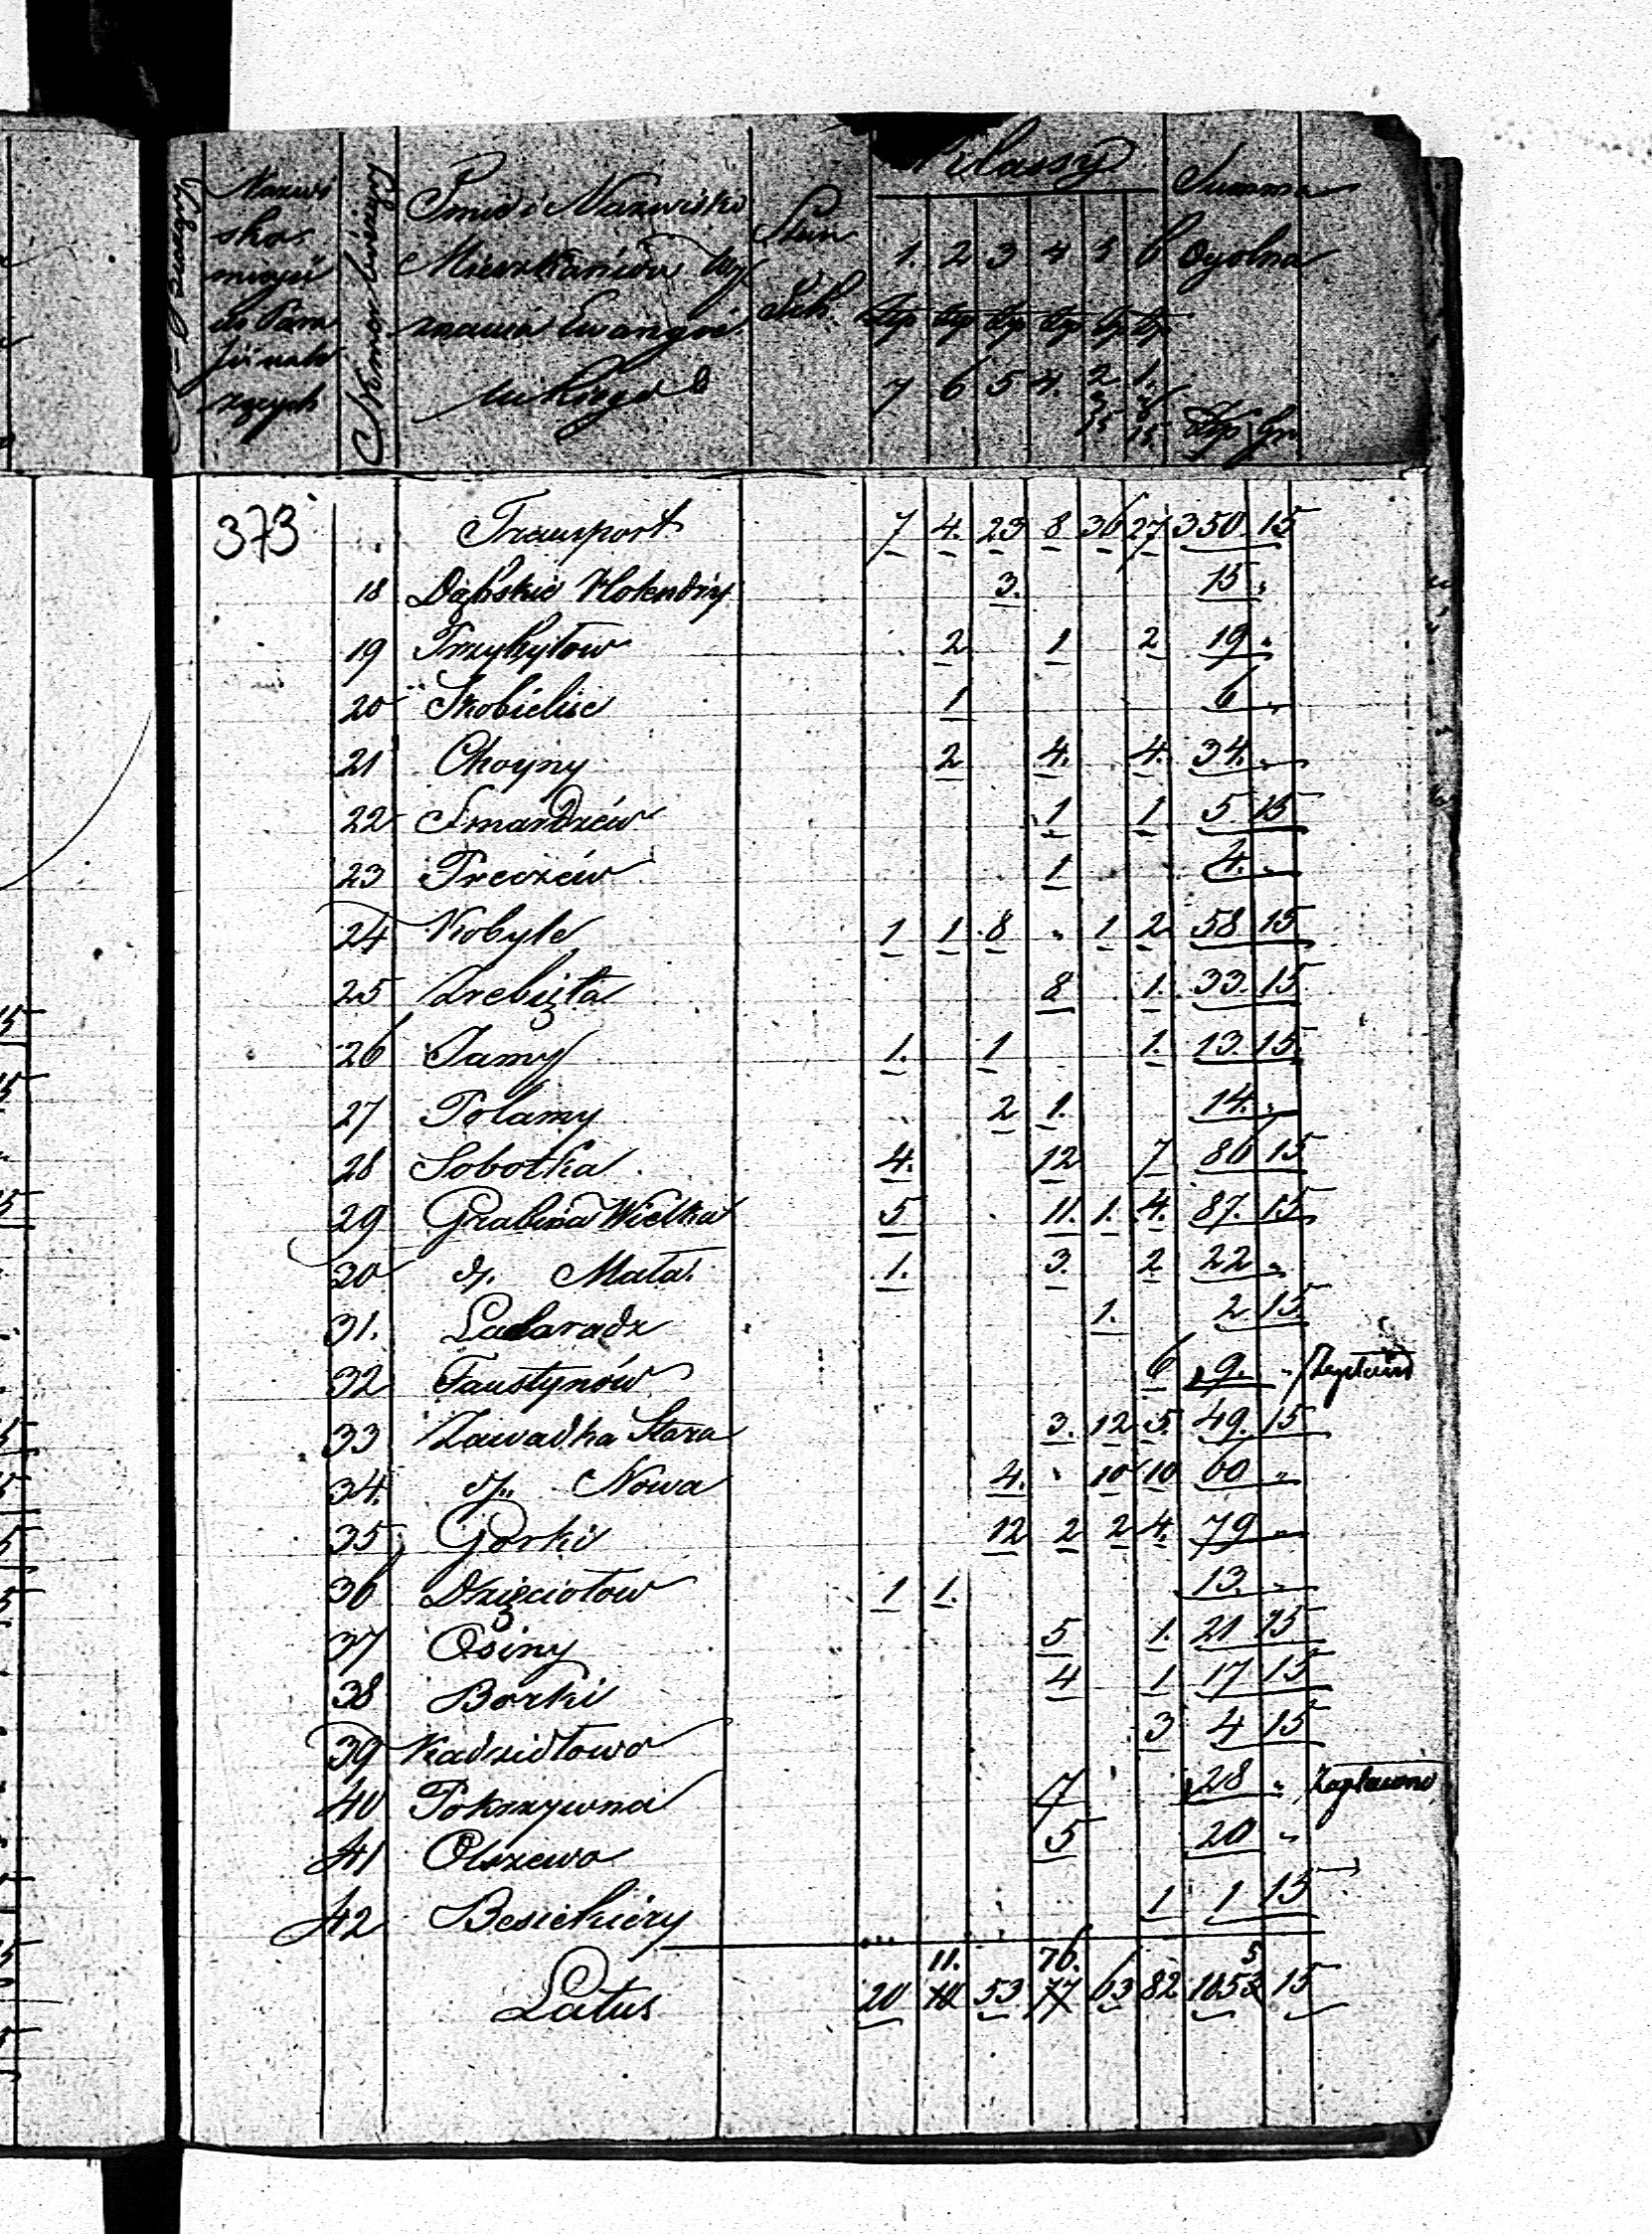 Nazwi
ska
mieysc
do Para
fii nale
żących
Numer bieżący
Imie i Nazwisko
Mieszkańców Wy
znania Ewangie
lickiego
Klassy
1. 2 3 4 5 6
7 6 5 4. 2 1.
15 15
Summa
Ogolna
Złp gr
373 Transport 7 4. 23 8 36 27 350. 15
18 Dąbskie Holendry 3. 15 "
19 Przybyłow 2 1 2 19 "
20 Skobielice 1 6 "
21 Choyny 2 4. 4. 34. "
22 Smardzéw 1 1 5 15
23 Preczéw 1 4. "
24 Kobyle 1 1 8 " 1 2 58 15
25 Zrebięta 8 1. 33. 15
26 Jamy 1. 1 1. 13. 15.
27 Polamy 2 1. 14. "
28 Sobotka 4. 12 7 86 15
29 Grabina Wielka 5 11. 1. 4. 87. 15
20 dy. Mała. 1. 3. 2 22 "
31. Ladaradz 1. 2 15
32 Faustynów 6 9. "
33 Zawadka Stara 3. 12 5. 49. 15
34. dy.. Nowa 4. " 10 10 60 "
35 Gorki 12 2 2 4. 79 "
36 Dzięciołow 1 1. 13. "
37 Osiny 5 1. 21 15
38 Borki 4 1 17 15
39 Kadzidłowo 3 4 15
40 Pokrzywna 7 28 " Zapłacono
41 Olszewo 5 20 "
42 Besiekiery 1 1 15
11. 76. 5
Latus 20 10 53 77 63 82 1053 15